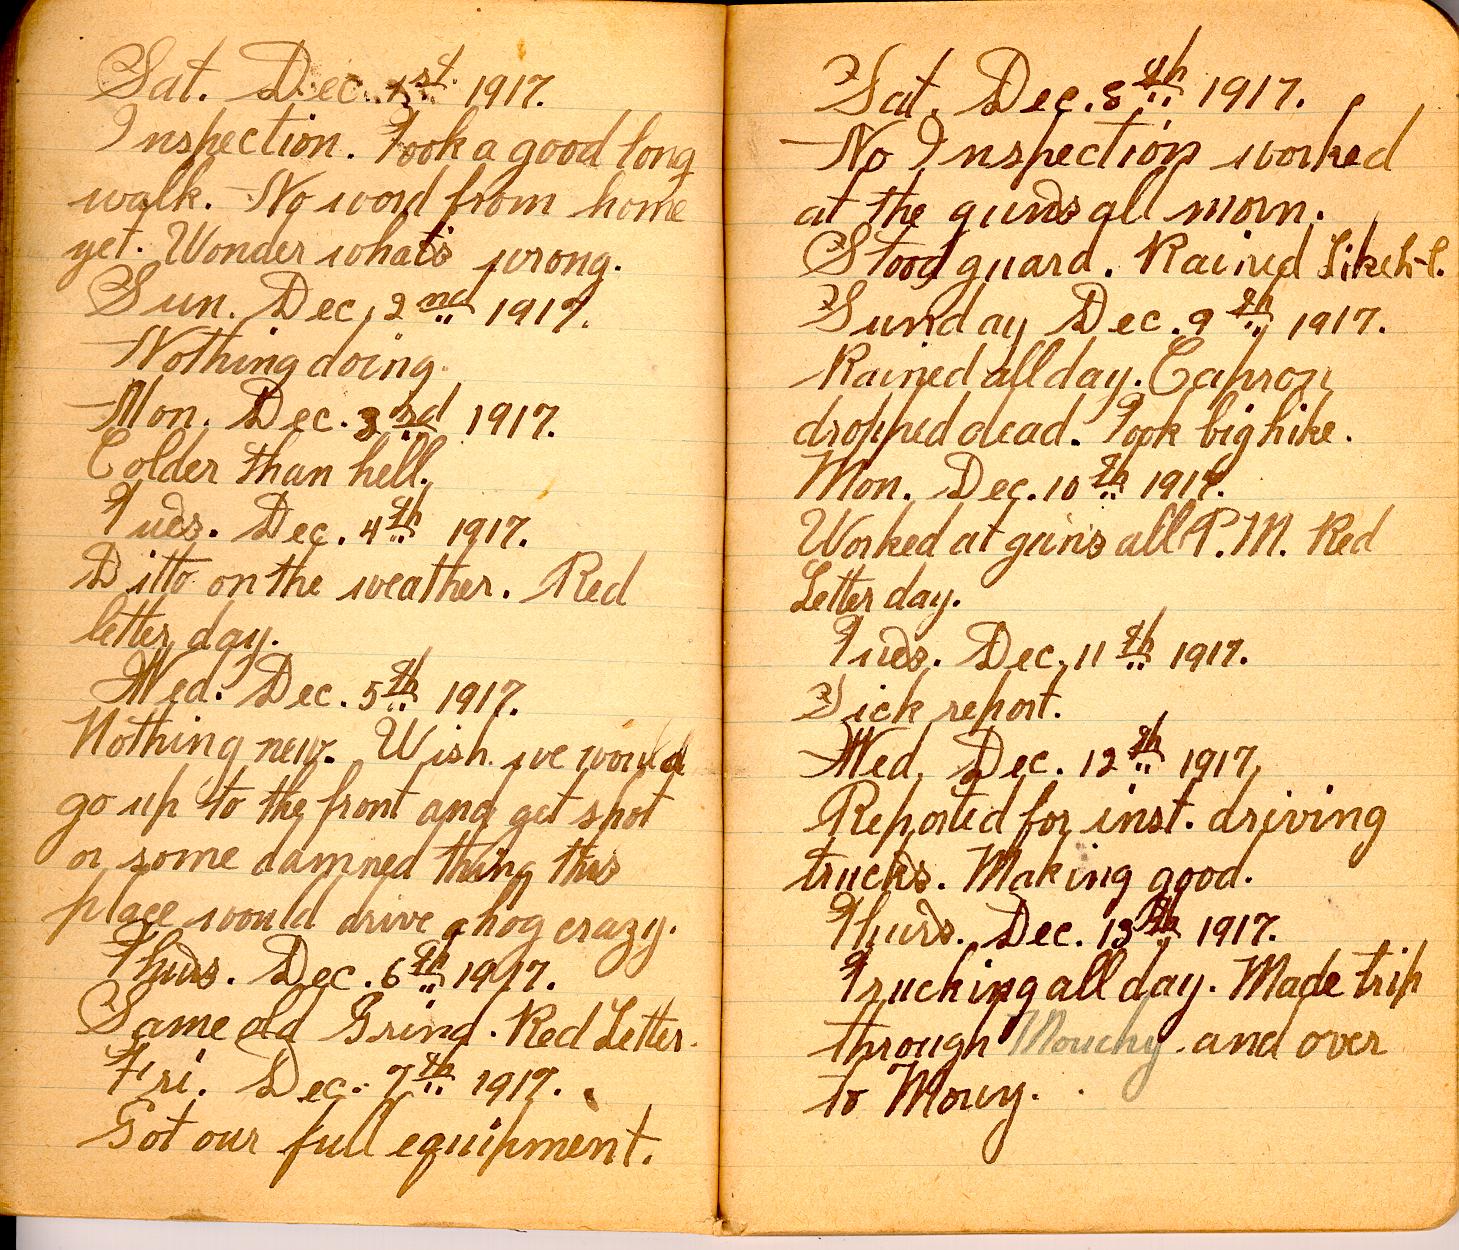 Sat. Dec. 1st. 1917.
Inspection. Took a good long
walk. No word from home
yet. Wonder what's wrong.
Sun. Dec, 2nd 1917.
Nothing doing.
Mon. Dec. 3rd 1917.
Colder than hell.
Tues. Dec. 4th 1917.
Ditto on the weather. Red
letter day.
Wed. Dec. 5th 1917.
Nothing new. Wish we would
go up to the front and get shot
or some damned thing this
place would drive a hog crazy.
Thurs. Dec. 6th 1917.
Same old Grind. Red Letter.
Fri. Dec. 7th 1917.
Got our full equipment.
Sat. Dec. 8th 1917.
No Inspection worked
at the guns all morn.
Stood guard. Rained like h-l.
Sunday Dec. 9th 1917.
Rained all day. Capron
dropped dead. Took big hike.
Mon. Dec. 10th 1917.
Worked at guns all P.M. Red
Letter day.
Tues. Dec. 11th 1917.
Sick report.
Wed. Dec. 12th 1917.
Reported for inst. driving
trucks. Making good.
Thurs. Dec. 13th 1917.
Trucking all day. Made trip
through Mouchy and over
to Mouy.